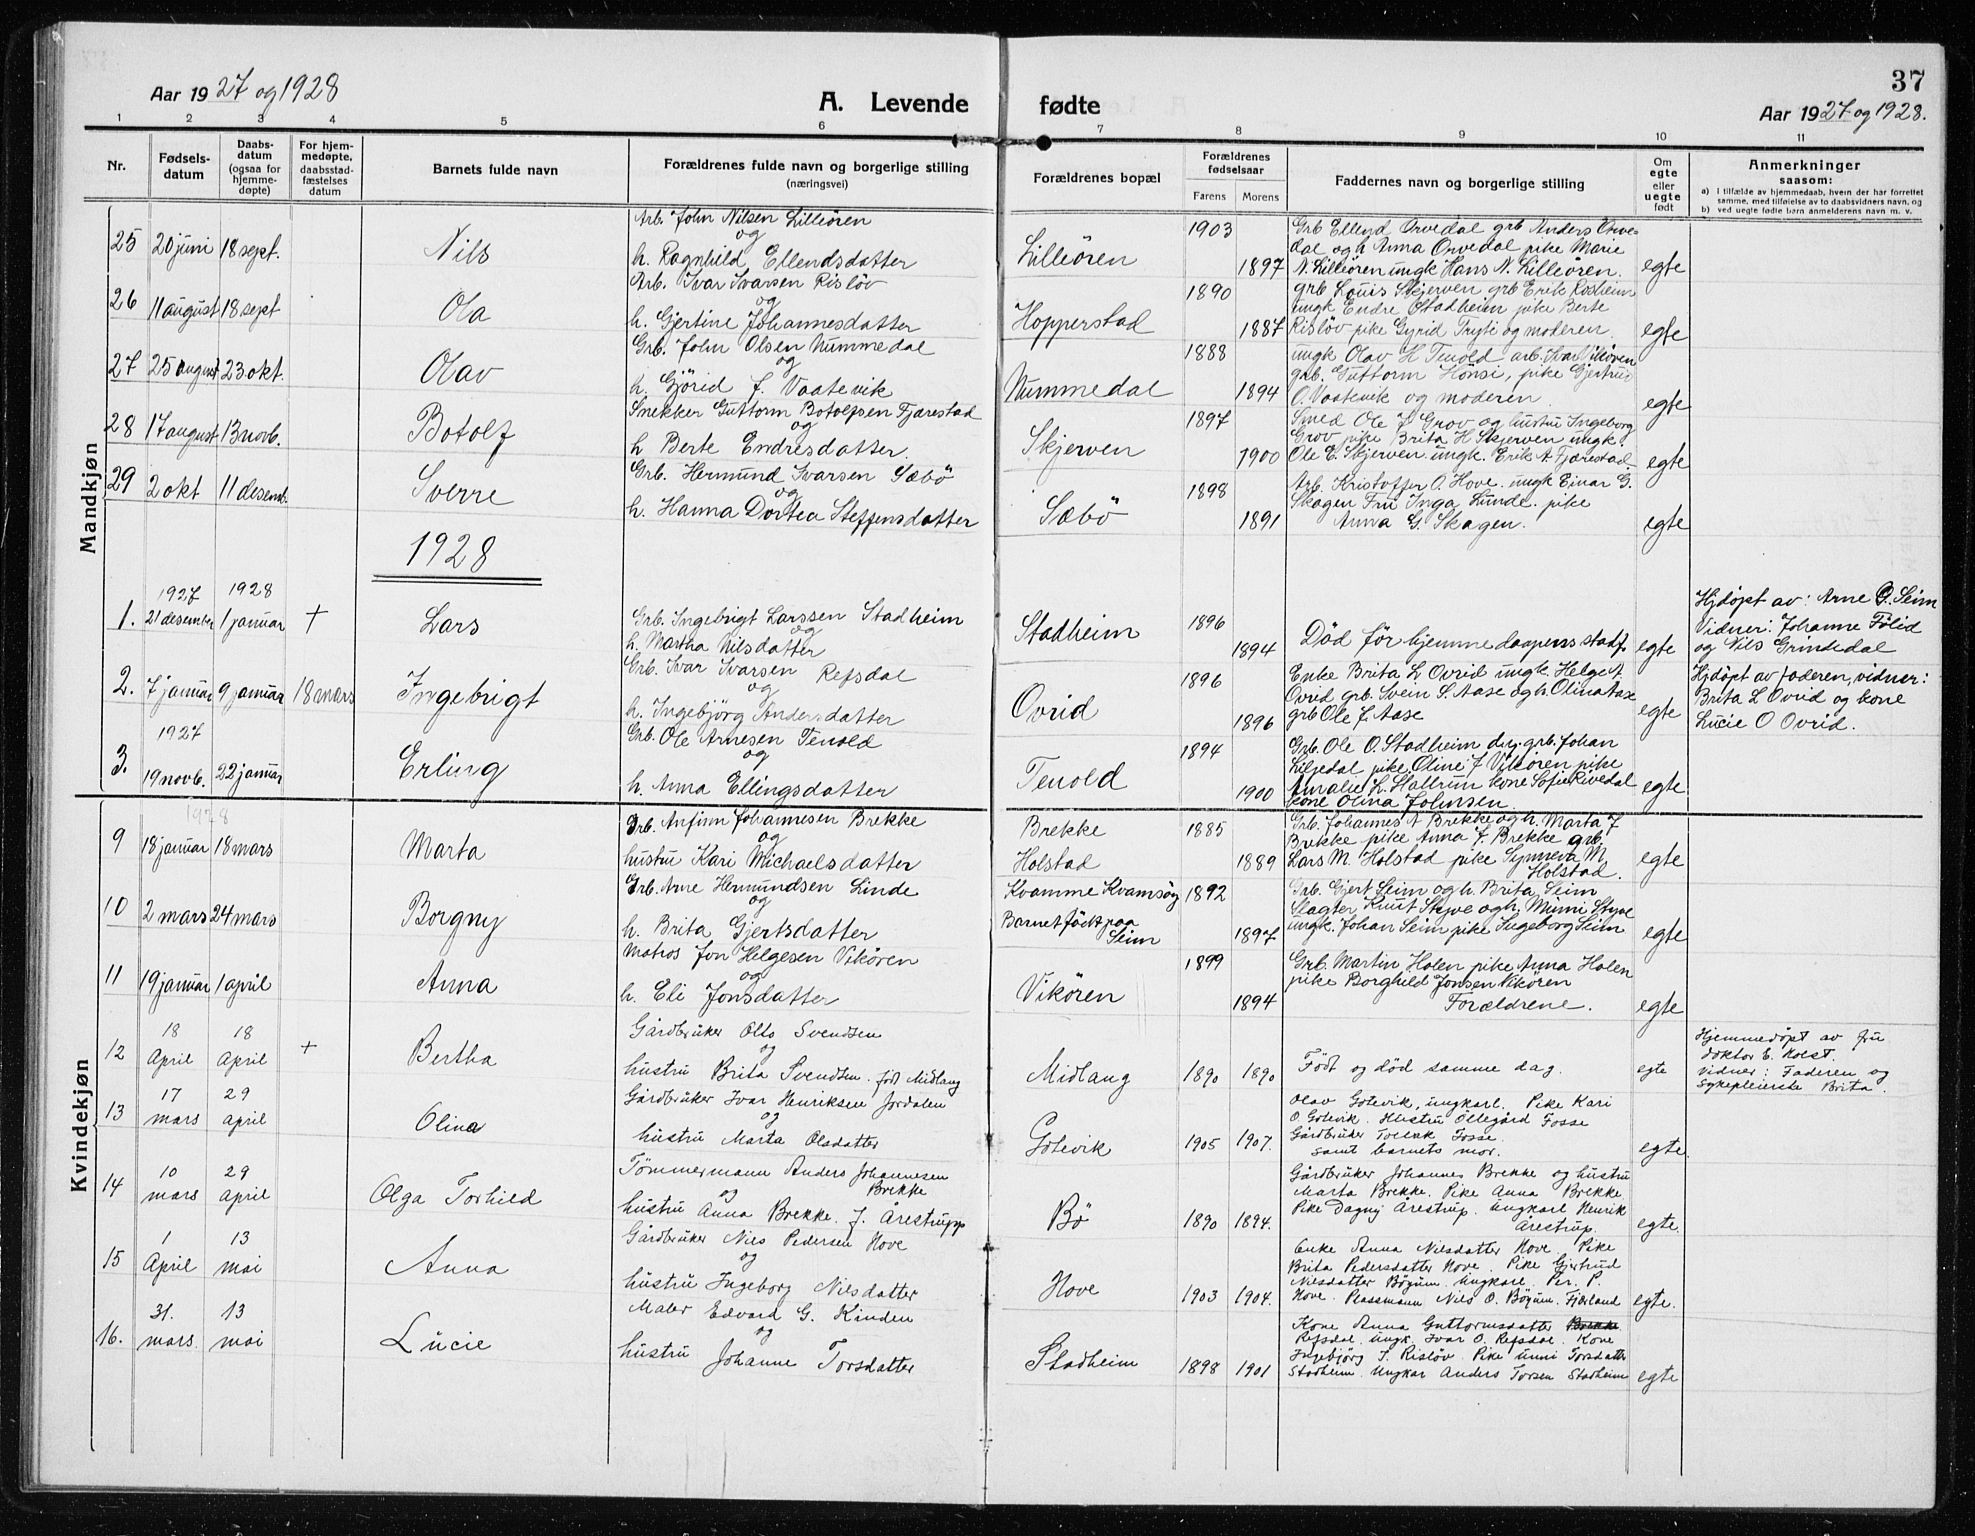 Aar 1927 og 1928
A. Levende fødte
37
Aar 1927 og 1928.
1 2 3 4 5 6 7 8 9 10 11
Nr.
Fødsels-
datum
Daabs-
datum
(ogsaa for
hjemme-
døpte)
For hjem-
medøpte,
daabsstad-
fæstelses
datum
Barnets fulde navn
Forældrenes fulde navn og borgerlige stilling
(næringsvei)
Forældrenes bopæl
Forældrenes
fødselsaar
Farens Morens
Faddernes navn og borgerlige stilling
Om
egte
eller
uegte
født
Anmerkninger
saasom:
a) I tilfælde av hjemmedaab, hvem der har forrettet
samme, med tilføielse av to daabsvidners navn, og
b) ved uegte fødte barn anmelderens navn m. v.
Mandkjøn
25 20 juni 18 sept. Nils
Arb. John Nilsen Lilleören
og
h. Ragnhild Ellendsdatter
Lilleören 1903 1897
Grb Ellend Orvedal grb Anders Orve-
dal og h Anna Orvedal pike Marie
N. Lilleören ungk Hans N. Lilleören.
egte
26 11 august 18 sept Ola
Arb. Ivar Ivarsen Rislöv
og
h. Gjertine Johannesdatter
Hopperstad 1890 1887
grb Louis Skjerven grb Erik Rodheim
ungk Endre Stadheim pike Berte
Rislöv pike Gyrid Tryti og moderen
egte
27 25 august 23 okt. Olav
Grb. John Olsen Nummedal
og
h. Gjörid J. Vaatevik
Nummedal 1888 1894
ungk Olav H Tenold arb. Ivar Vikören
grb. Guttorm Hönsi, pike Gjertrud
O. Vaatevik og moderen
egte
28 17 august 13 novb. Botolf
Snekker Guttorm Botolfsen Fjærestad
og
h Berte Endresdatter.
Skjerven 1897 1900
Smed Ole J Grov og hustru Ingeborg
Grov pike Brita H Skjerven ungk.
Ole E. Skjerven ungk. Erik A. Fjærestad.
egte
29 2 okt 11 desemb. Sverre
Grb. Hermund Ivarsen Sæbö
og
h. Hanna Dortea Steffensdatter
Sæbö 1898 1891
Arb. Kristoffer O. Hove. ungk Einar G.
Skagen Fru Inga Lunde. pike
Anna G. Skagen.
egte
1928
1927 1928
1. 21 desember 1 januar + Lars
Grb. Ingebrigt Larssen Stadheim
og
h. Martha Nilsdatter
Stadheim 1896 1894
Död för hjemmedaapens stadf.
egte
Hjdöpt av: Arne G. Seim
Vidner: Johanne Fölid
og Nils Grindedal
2. 7 januar 9 januar 18 mars Ingebrigt
Grb. Ivar Ivarsen Refsdal
og
h. Ingebjörg Andersdatter
Ovrid 1896 1896
Enke Brita L Ovrid ungk. Helge A
Ovrid grb. Svein S. Aase og h. Olina Aase
grb Ole J. Aase
egte
Hjdöpt av faderen, vidner:
Brita L Ovrid og kone
Lucie O Ovrid.
1927
3. 19 novb. 22 januar Erling
Grb. Ole Arnesen Tenold
og
h. Anna Ellingsdatter
Tenold 1894 1900
Grb. Ole O. Stadheim grb. Johan
Liljedal pike Oline J Vikören pike
Amalie L. Hallrun kone Sofie Rivedal
kone Olina Johnsen.
egte
Kvindekjøn
1928
9 18 januar 18 mars Marta
Grb. Anfinn Johannesen Brekke
og
hustru Kari Michaelsdatter
Brekke
Holstad
1885 1889
Grb. Johannes A Brekke og h. Marta J
Brekke pike Anna J. Brekke grb.
Lars M. Holstad pike Synneva M.
Holstad.
egte
10 2 mars 24 mars Borgny
Grb. Arne Hermundsen Linde
og
h. Brita Gjertsdatter
Kvamme Kvamsöy
Barnet födt paa
Seim
1892 1897
Grb. Gjert Seim og h. Brita Seim
Slagter Knut Styve og h. Mimi Styve
ungk. Johan Seim pike Ingeborg Seim
egte
11 19 januar 1 april Anna
Matros Jon Helgesen Vikören
og
h. Eli Jonsdatter
Vikören 1899 1894
Grb. Martin Holen pike Anna Holen
pike Borghild Jonsen Vikören
Forældrene.
egte
12 18 April 18 April + Bertha
Gårdbruker Olts Svendsen
og
hustru Brita Svendsen. födt Midlang
Midlang 1890 1890
Födt og död samme dag.
egte
Hjemmedöpt av fru
doktor E. Holst.
vidner: Faderen og
sykepleierske Brita.
13 17 mars 29 april Olina
Gårdbruker Ivar Henriksen Jordalen
og
hustru Marta Olsdatter
Götevik 1905 1907.
Olav Götevik, ungkarl. Pike Kari
O Götevik. Hustru Ollegård Fosse
Gårdbruker Tollak Fosse.
samt barnets mor.
egte.
14 10 mars 29 april Olga Torhild
Tömmermann Anders Johannesen
Brekke
og
hustru Anna Brekke. f. Årestrupp
Bö 1890 1894.
Gårdbruker Johannes Brekke og hustru
Marta Brekke. Pike Anna Brekke
Pike Dagny Årestrup. Ungkarl Henrik
Årestrup.
egte.
15 1 April 13 mai Anna
Gårdbruker Nils Pedersen Hove
og
hustru Ingeborg Nilsdatter
Hove 1903 1904.
Enke Anna Nilsdatter Hove Pike
Brita Pedersdatter Hove. Pike Gjertrud
Nilsdatter Böyum. Ungkarl. Per. P.
Hove. Plassmann Nils O. Böyum. Fjærland
egte.
16. 31. mars 13 mai Lucie
Maler Edvard G. Kinden
og
hustru Johanne Torsdatter
Stadheim 1898 1901
Kone Anna Guttormsdatter Brekke
Refsdal. ungk. Ivar O. Refsdal. Kone
Ingebjörg I. Rislöv. Pike Unni Torsdatter
Stadheim. Ungkar Anders Torsen Stadheim
egte